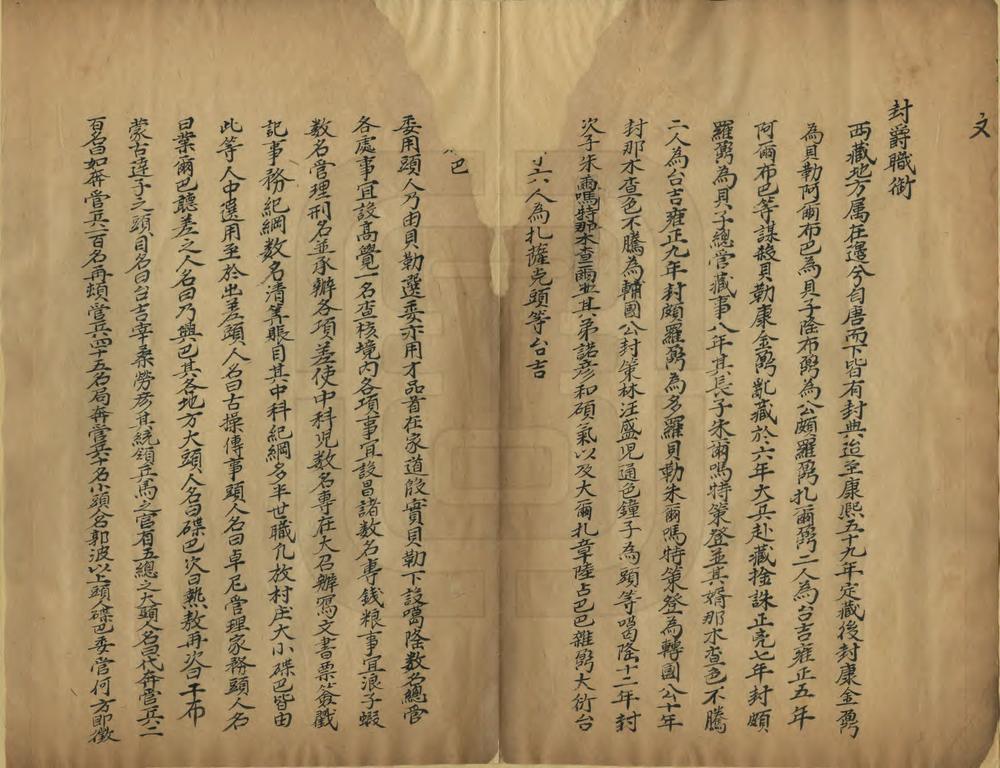 文
封爵職銜
西藏地方属在邊兮自唐而下皆有封典迨至康熙五十九年定藏後封康金鼐
為貝勒阿爾布巴為貝子隆布鼐為公頗羅鼐扎爾鼐二人為台吉雍正五年
阿爾布巴等謀殺貝勒康金鼐亂藏於六年大兵赴藏擒誅正完七年封頗
羅鼐為貝子總管藏事八年其長子朱爾嗎特策登並其婿那木查色不騰
二人為台吉雍正九年封頗羅鼐為多羅貝勒朱爾嗎特策登為轉國公十年
封那木查色不騰為輔國公封策林汪盛児通色鐘子為頭等噶隆十二年封
次子朱爾嗎特那木查爾並其弟諾彦和碩氣以及大爾扎章陸占巴巴雜鼐大衍台
六人為扎薩克頭等台吉
巴
委用頭人乃由貝勒選委亦用才品首在家道殷實貝勒下設噶隆数名總管
各處事宜設髙覺一名查核境内各項事宜設昌諸数名專錢粮事宜浪子蝦
数名管理刑名並承辦各項差使中科児数名專在大召辦寫文書票簽戳
記事務紀綱数名清筭賬目其中科紀綱多半世職凢放村庄大小碟巴皆由
此等人中選用至於出差頭人名曰古操傳事頭人名曰卓尼管理家務頭人名
曰業爾巴聽差之人名曰乃興巴其各地方大頭人名曰碟巴次曰熱敖再次曰干布
蒙古達子之頭目名曰台吉宰桑勞彦其統領兵馬之官有五總之大頭人名曰代奔管兵二
百名曰如奔管兵一百名再頓管兵四十五名局奔管兵十名小頭人名郭波以上頭人碟巴委管何方即徵